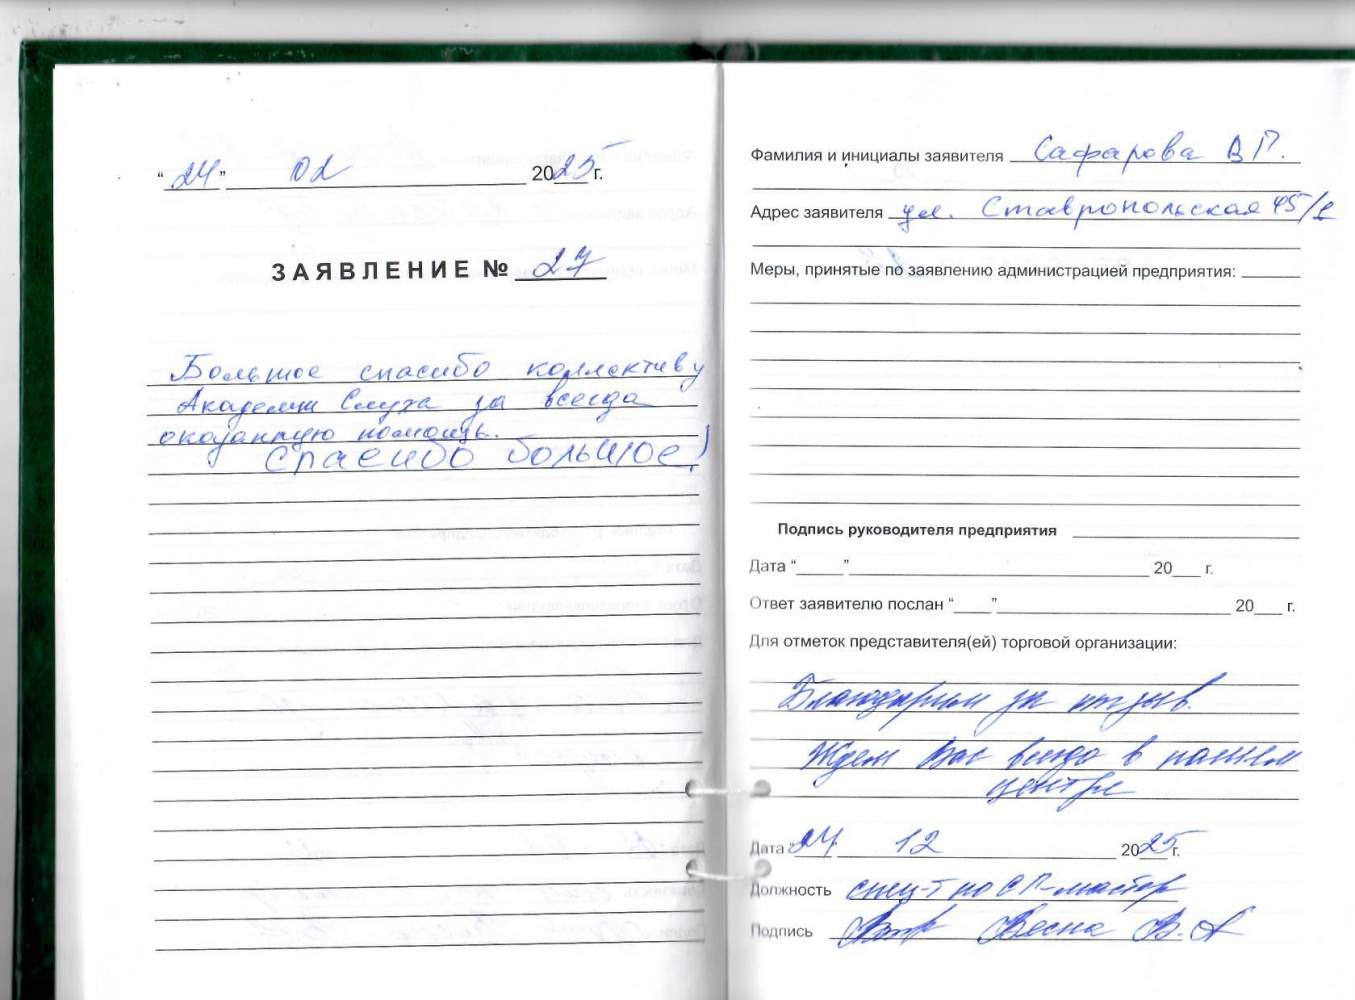 “24” 02 2025 г.
ЗАЯВЛЕНИЕ № 27
Большое спасибо коллективу
Академии Слуха за всегда
оказанную помощь.
Спасибо большое!
Фамилия и инициалы заявителя Сафарова В П.
Адрес заявителя ул. Ставропольская 45/1
Меры, принятые по заявлению администрацией предприятия:
Подпись руководителя предприятия
Дата “ ” 20 г.
Ответ заявителю послан “ ” 20 г.
Для отметок представителя(ей) торговой организации:
Благодарим за отзыв.
Ждем Вас всегда в нашем
центре
Дата “24” 12 2025 г.
Должность спец-т по СП-мастер
Подпись Весна В.А